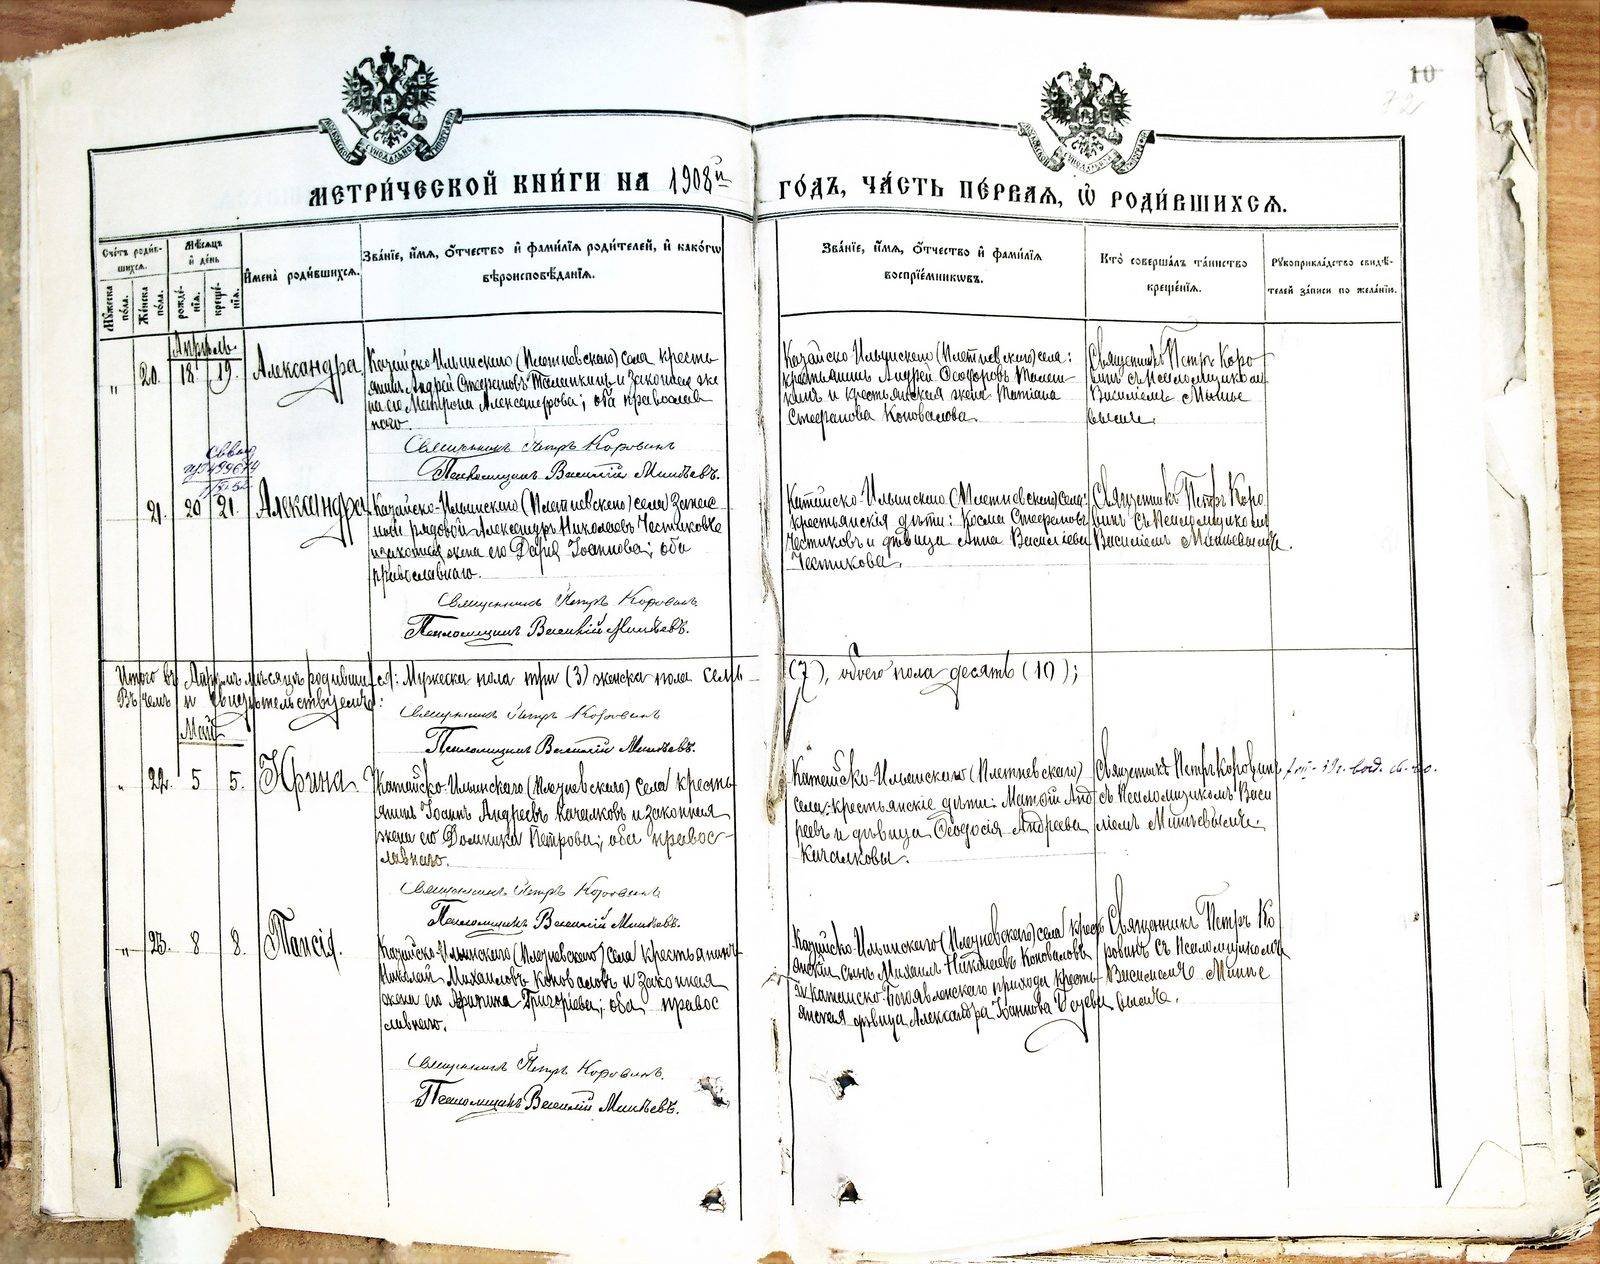 10
МЕТРИ́ЧЕСКОЙ КНИ́ГИ НА 1908й ГО́ДЪ, ЧА́СТЬ ПЕ́РВАЯ, Ѡ РОДИ́ВШИХСЯ.
Сче́тъ роди́вшихся.
Мꙋжеска по́ла.
Же́нска по́ла.
Мѣ́сяцъ и де́нь
рожде́нїя.
креще́нїя.
И҆мена̀ роди́вшихся.
Зва́нїе, и҆́мя, ѻ҆́тчество и҆ фами́лїя роди́телей, и҆ како́гѡ
вѣроисповѣ́данїя.
Зва́нїе, и҆́мя, ѻ҆́тчество и҆ фами́лїя
воспрїе́мникѡвъ.
Кто̀ соверша́лъ та́инство
креще́нїя.
Рꙋкоприкла́дство свидѣ́-
телей за́писи по жела́нїю.
Апрѣль
" 20. 18. 19. Александра
Катайско-Ильинскаго (Плетневскаго) села кресть-
янинъ Андрей Стефановъ и законная же
на его Матрона Александрова; оба православ
наго.
Священникъ Петръ Коровинъ
Псаломщикъ Василій Минѣевъ.
Катайско-Ильинскаго (Плетневскаго) села:
крестьянинъ Андрей Ѳеодоровъ
и крестьянская жена Татіана
Стефанова Коновалова.
Священникъ Петръ Коро-
винъ съ псаломщикомъ
Василіемъ Минѣе
вымъ.
21. 20 21. Александра
Катайско-Ильинскаго (Плетневскаго) села запас-
ный рядовой Александръ Николаевъ Честиковъ
и законная жена его Дарія Іоаннова; оба
православнаго.
Священникъ Петръ Коровинъ.
Псаломщикъ Василій Минѣевъ.
Катайско-Ильинскаго (Плетневскаго) села:
крестьянскія дѣти: Косма Стефановъ
Честиковъ и дѣвица Анна Василіева
Честикова.
Священникъ Петръ Коро
винъ съ псаломщикомъ
Василіемъ Минѣевымъ.
Итого въ Апрѣлѣ мѣсяцѣ родившихся: Мужеска пола три (3) женска пола семь (7), обоего пола десять (10);
Въ чемъ и свидѣтельствуемъ:
Священникъ Петръ Коровинъ
Псаломщикъ Василій Минѣевъ.
Май
" 22. 5 5. Ирина
Катайско-Ильинскаго (Плетневскаго) села кресть-
янинъ Іоаннъ Андреевъ Качалковъ и законная
жена его Домника Петрова; оба правос-
лавнаго.
Священникъ Петръ Коровинъ
Псаломщикъ Василій Минѣевъ.
Катайско-Ильинскаго (Плетневскаго)
села: крестьянскіе дѣти: Матѳій Анд
реевъ и дѣвица Ѳеодосія Андреева
Качалковы.
Священникъ Петръ Коровинъ
съ псаломщикомъ Васи
ліемъ Минѣевымъ.
" 23. 8 8. Таисія.
Катайско-Ильинскаго (Плетневскаго) села крестьянинъ
Николай Михаиловъ Коноваловъ и законная
жена его Григоріева; оба правос
лавнаго.
Священникъ Петръ Коровинъ.
Псаломщикъ Василій Минѣевъ.
Катайско-Ильинскаго (Плетневскаго) села кресть
янскій сынъ Михаилъ Николаевъ Коноваловъ
и Катайско-Богоявленскаго прихода кресть-
янская дѣвица Александра Іоаннова
Священникъ Петръ Ко
ровинъ съ псаломщикомъ
Василіемъ Минѣе
вымъ.